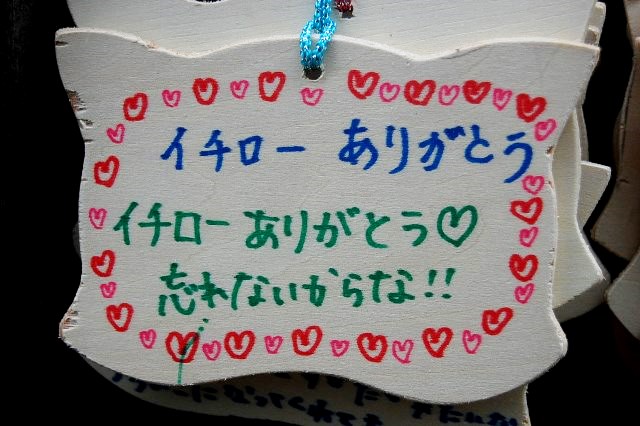 イチロー ありがとう
イチローありがとう♡
忘れないからな!!